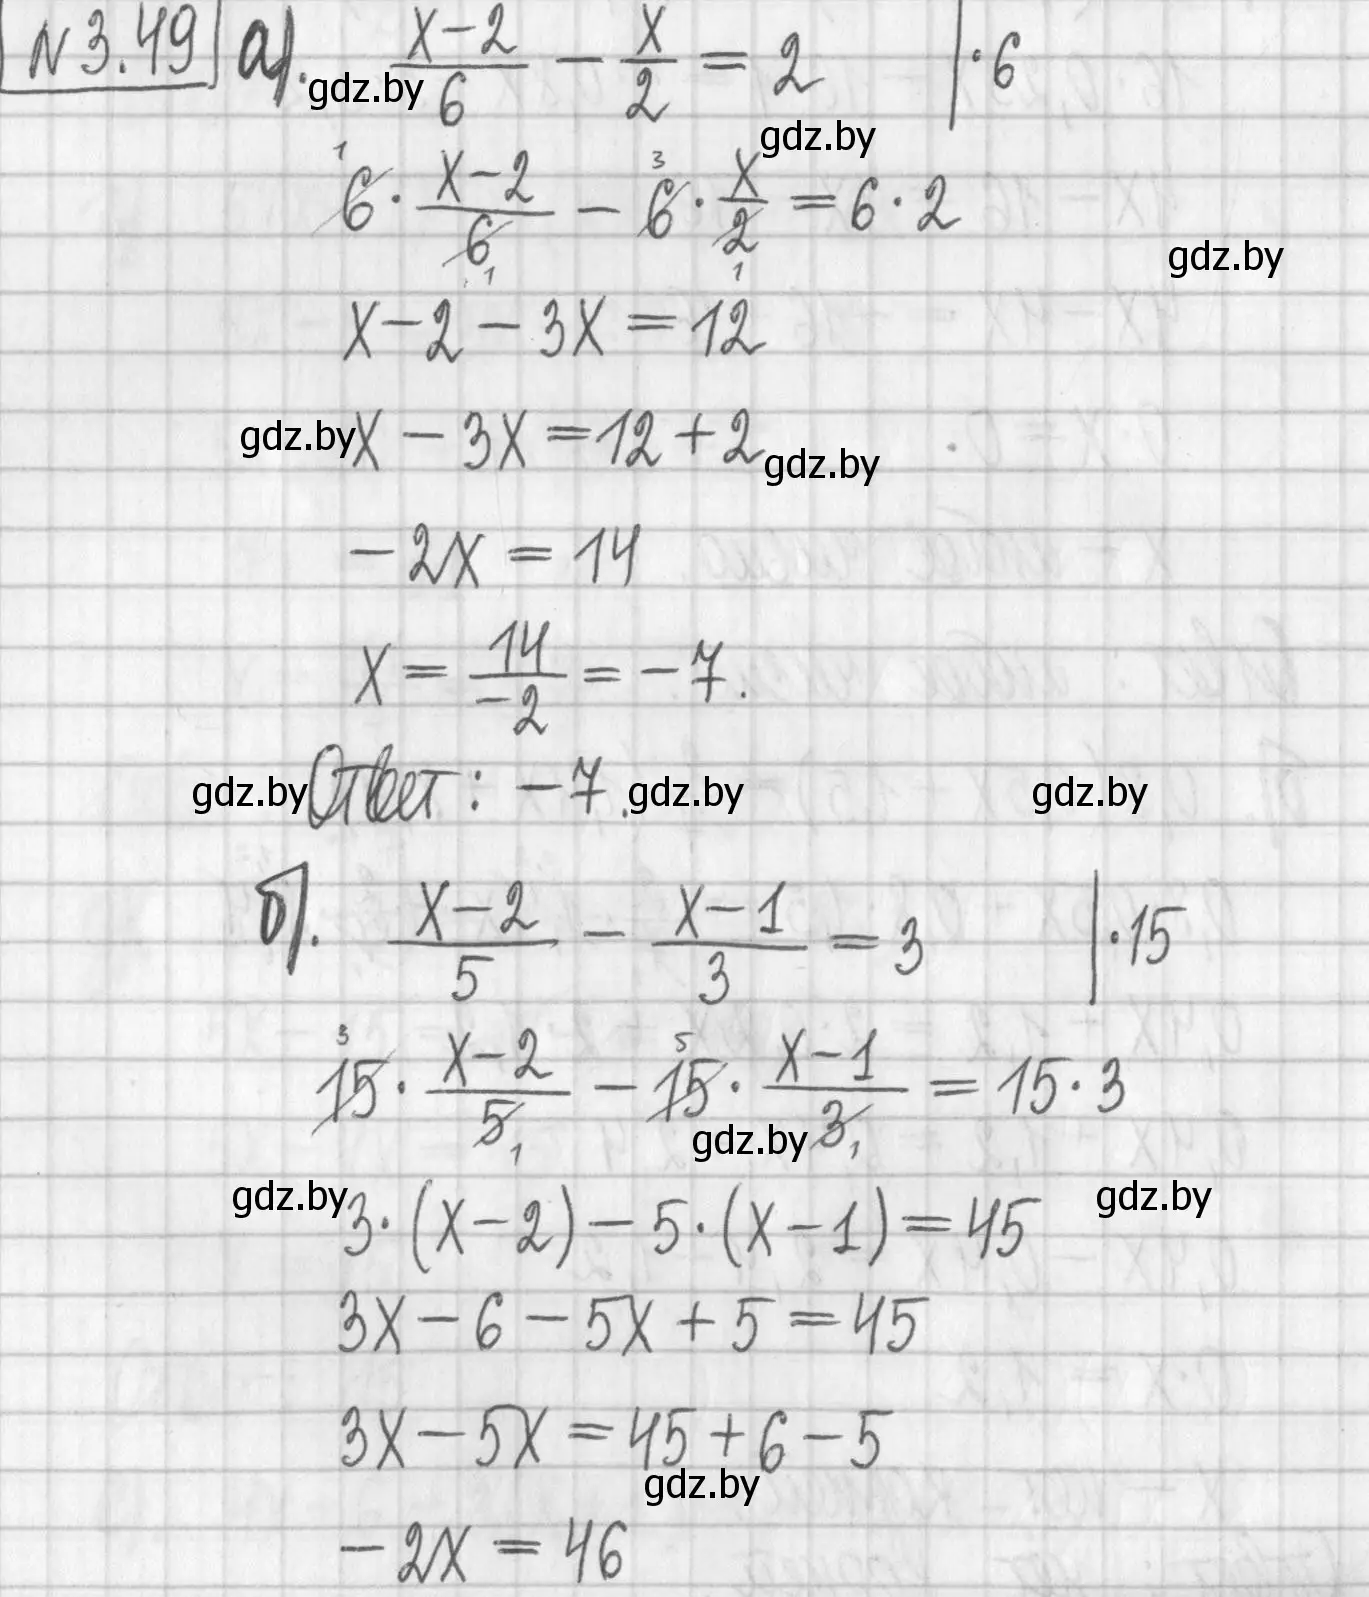 №3.49 а). (x-2)/6 - x/2 = 2 |·6
gdz.by
gdz.by
6 · (x-2)/6 - 6 · x/2 = 6 · 2
gdz.by
x - 2 - 3x = 12
gdz.by x - 3x = 12 + 2 gdz.by
-2x = 14
x = 14/-2 = -7.
gdz.by Ответ: -7. gdz.by gdz.by
б). (x-2)/5 - (x-1)/3 = 3 |·15
15 · (x-2)/5 - 15 · (x-1)/3 = 15 · 3
gdz.by
gdz.by gdz.by
3 · (x - 2) - 5 · (x - 1) = 45
3x - 6 - 5x + 5 = 45
3x - 5x = 45 + 6 - 5
gdz.by
-2x = 46